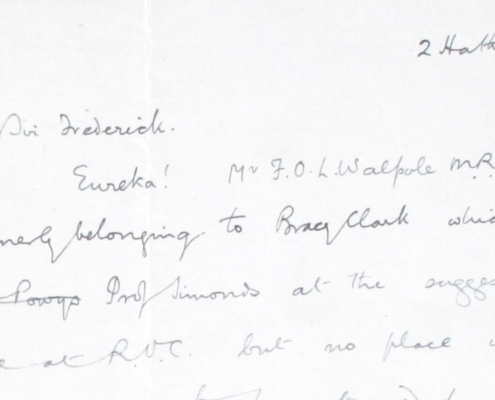 2 Hatt
Sir Frederick.
Eureka! Mr F.O.L. Walpole M.R.
merly belonging to Bracy Clark whi
Powys Prof Simonds at the sugges
e at R.V.C. but no place